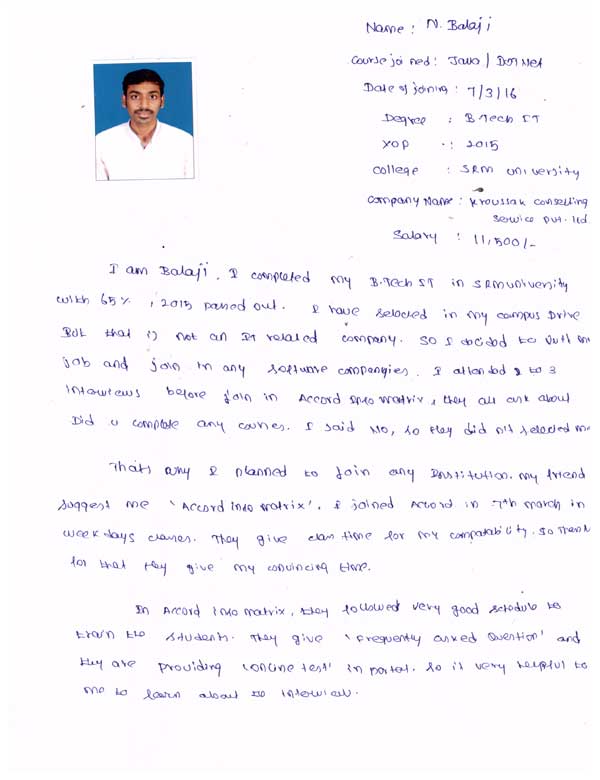 Name : N. Balaji
Course joined : Java / Dot Net
Date of joining : 7/3/16
Degree : B.Tech IT
YOP : 2015
College : SRM university
Company Name : Kroussak conselting
Service Pvt. ltd
Salary : 11,500/-
I am Balaji, I completed my B.Tech IT in SRM university
with 65% , 2015 passed out. I have selected in my campus Drive
But that is not an IT related company. So I decided to
job and join in any software companies. I attended 2 to 3
Interviews before join in Accord Info matrix, they all ask about
Did u complete any courses. I said No, so they did n't selected me
Thats why I planned to join any Institution. my friend
suggest me 'Accord info matrix'. I joined Accord in 7th march in
week days classes. They give class time for my compatability. So Thank
for that they give my convincing time.
In Accord info matrix, they followed very good schedule to
train the students. They give 'Frequently asked Question' and
they are providing 'online test' in portal. So it very helpful to
me to learn about the Interview.